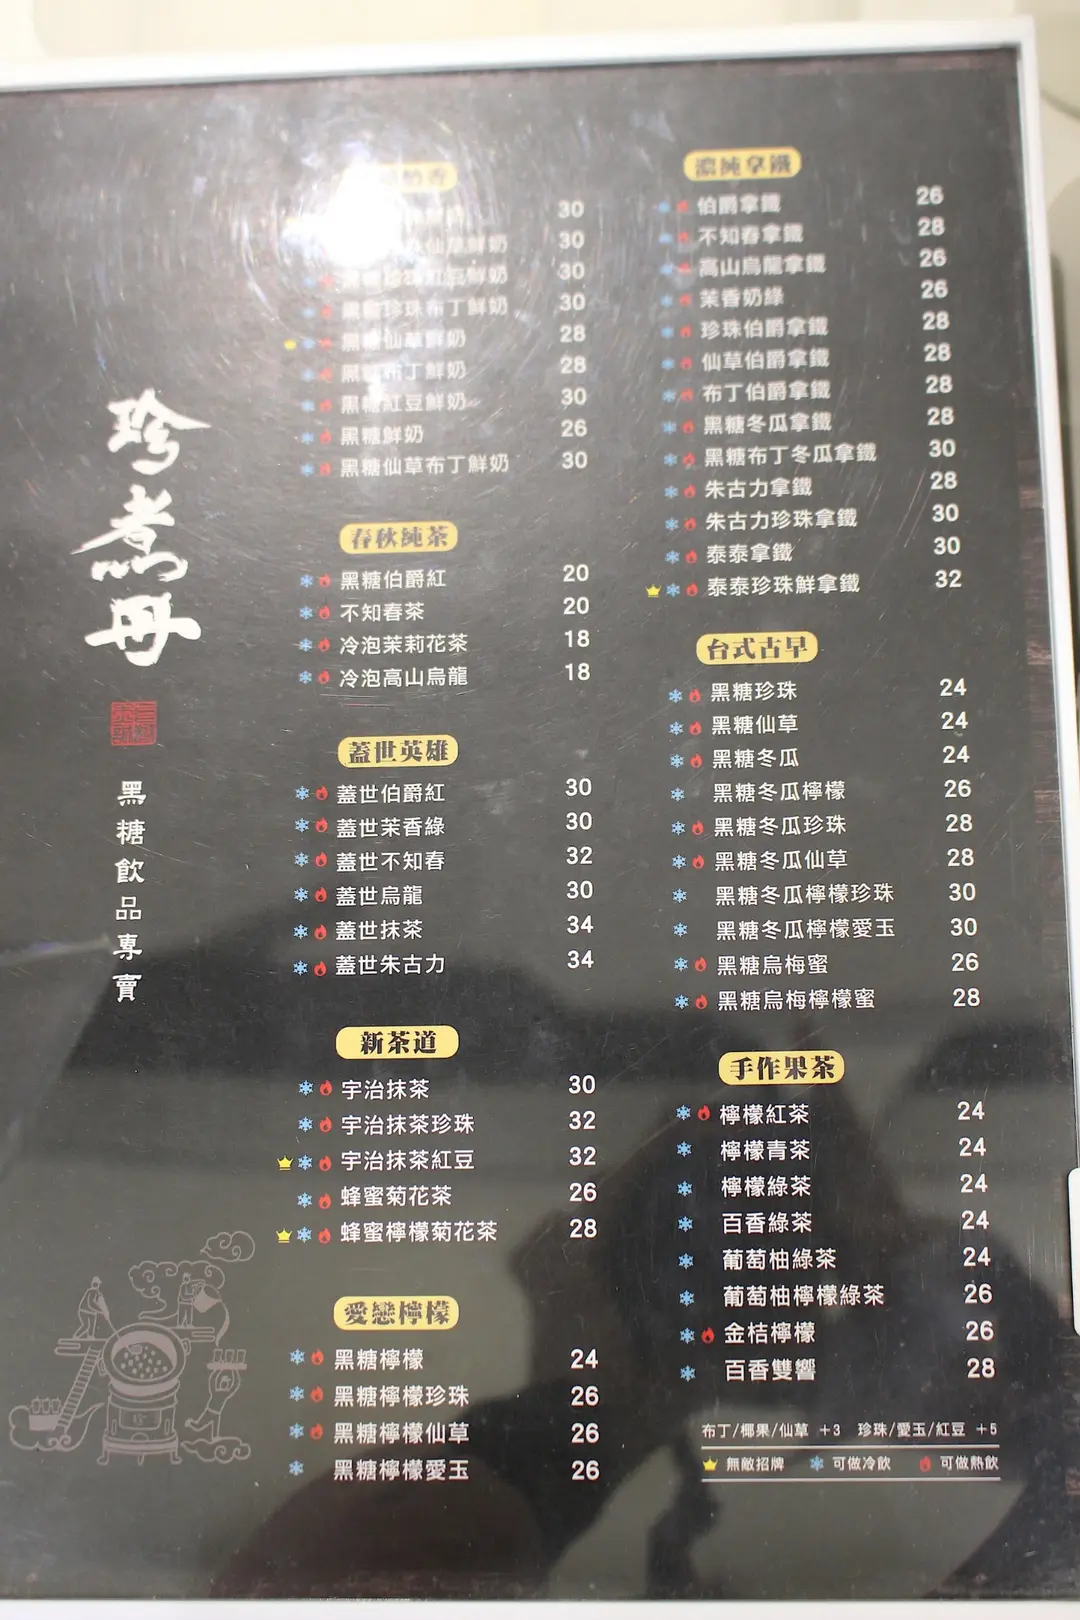 珍煮丹
黑糖飲品專賣
30
仙草鮮奶 30
黑糖珍珠紅豆鮮奶 30
黑糖珍珠布丁鮮奶 30
黑糖仙草鮮奶 28
黑糖布丁鮮奶 28
黑糖紅豆鮮奶 30
黑糖鮮奶 26
黑糖仙草布丁鮮奶 30
春秋純茶
黑糖伯爵紅 20
不知春茶 20
冷泡茉莉花茶 18
冷泡高山烏龍 18
蓋世英雄
蓋世伯爵紅 30
蓋世茉香綠 30
蓋世不知春 32
蓋世烏龍 30
蓋世抹茶 34
蓋世朱古力 34
新茶道
宇治抹茶 30
宇治抹茶珍珠 32
宇治抹茶紅豆 32
蜂蜜菊花茶 26
蜂蜜檸檬菊花茶 28
愛戀檸檬
黑糖檸檬 24
黑糖檸檬珍珠 26
黑糖檸檬仙草 26
黑糖檸檬愛玉 26
濃純拿鐵
伯爵拿鐵 26
不知春拿鐵 28
高山烏龍拿鐵 26
茉香奶綠 26
珍珠伯爵拿鐵 28
仙草伯爵拿鐵 28
布丁伯爵拿鐵 28
黑糖冬瓜拿鐵 28
黑糖布丁冬瓜拿鐵 30
朱古力拿鐵 28
朱古力珍珠拿鐵 30
泰泰拿鐵 30
泰泰珍珠鮮拿鐵 32
台式古早
黑糖珍珠 24
黑糖仙草 24
黑糖冬瓜 24
黑糖冬瓜檸檬 26
黑糖冬瓜珍珠 28
黑糖冬瓜仙草 28
黑糖冬瓜檸檬珍珠 30
黑糖冬瓜檸檬愛玉 30
黑糖烏梅蜜 26
黑糖烏梅檸檬蜜 28
手作果茶
檸檬紅茶 24
檸檬青茶 24
檸檬綠茶 24
百香綠茶 24
葡萄柚綠茶 24
葡萄柚檸檬綠茶 26
金桔檸檬 26
百香雙響 28
布丁/椰果/仙草 +3 珍珠/愛玉/紅豆 +5
無敵招牌 可做冷飲 可做熱飲